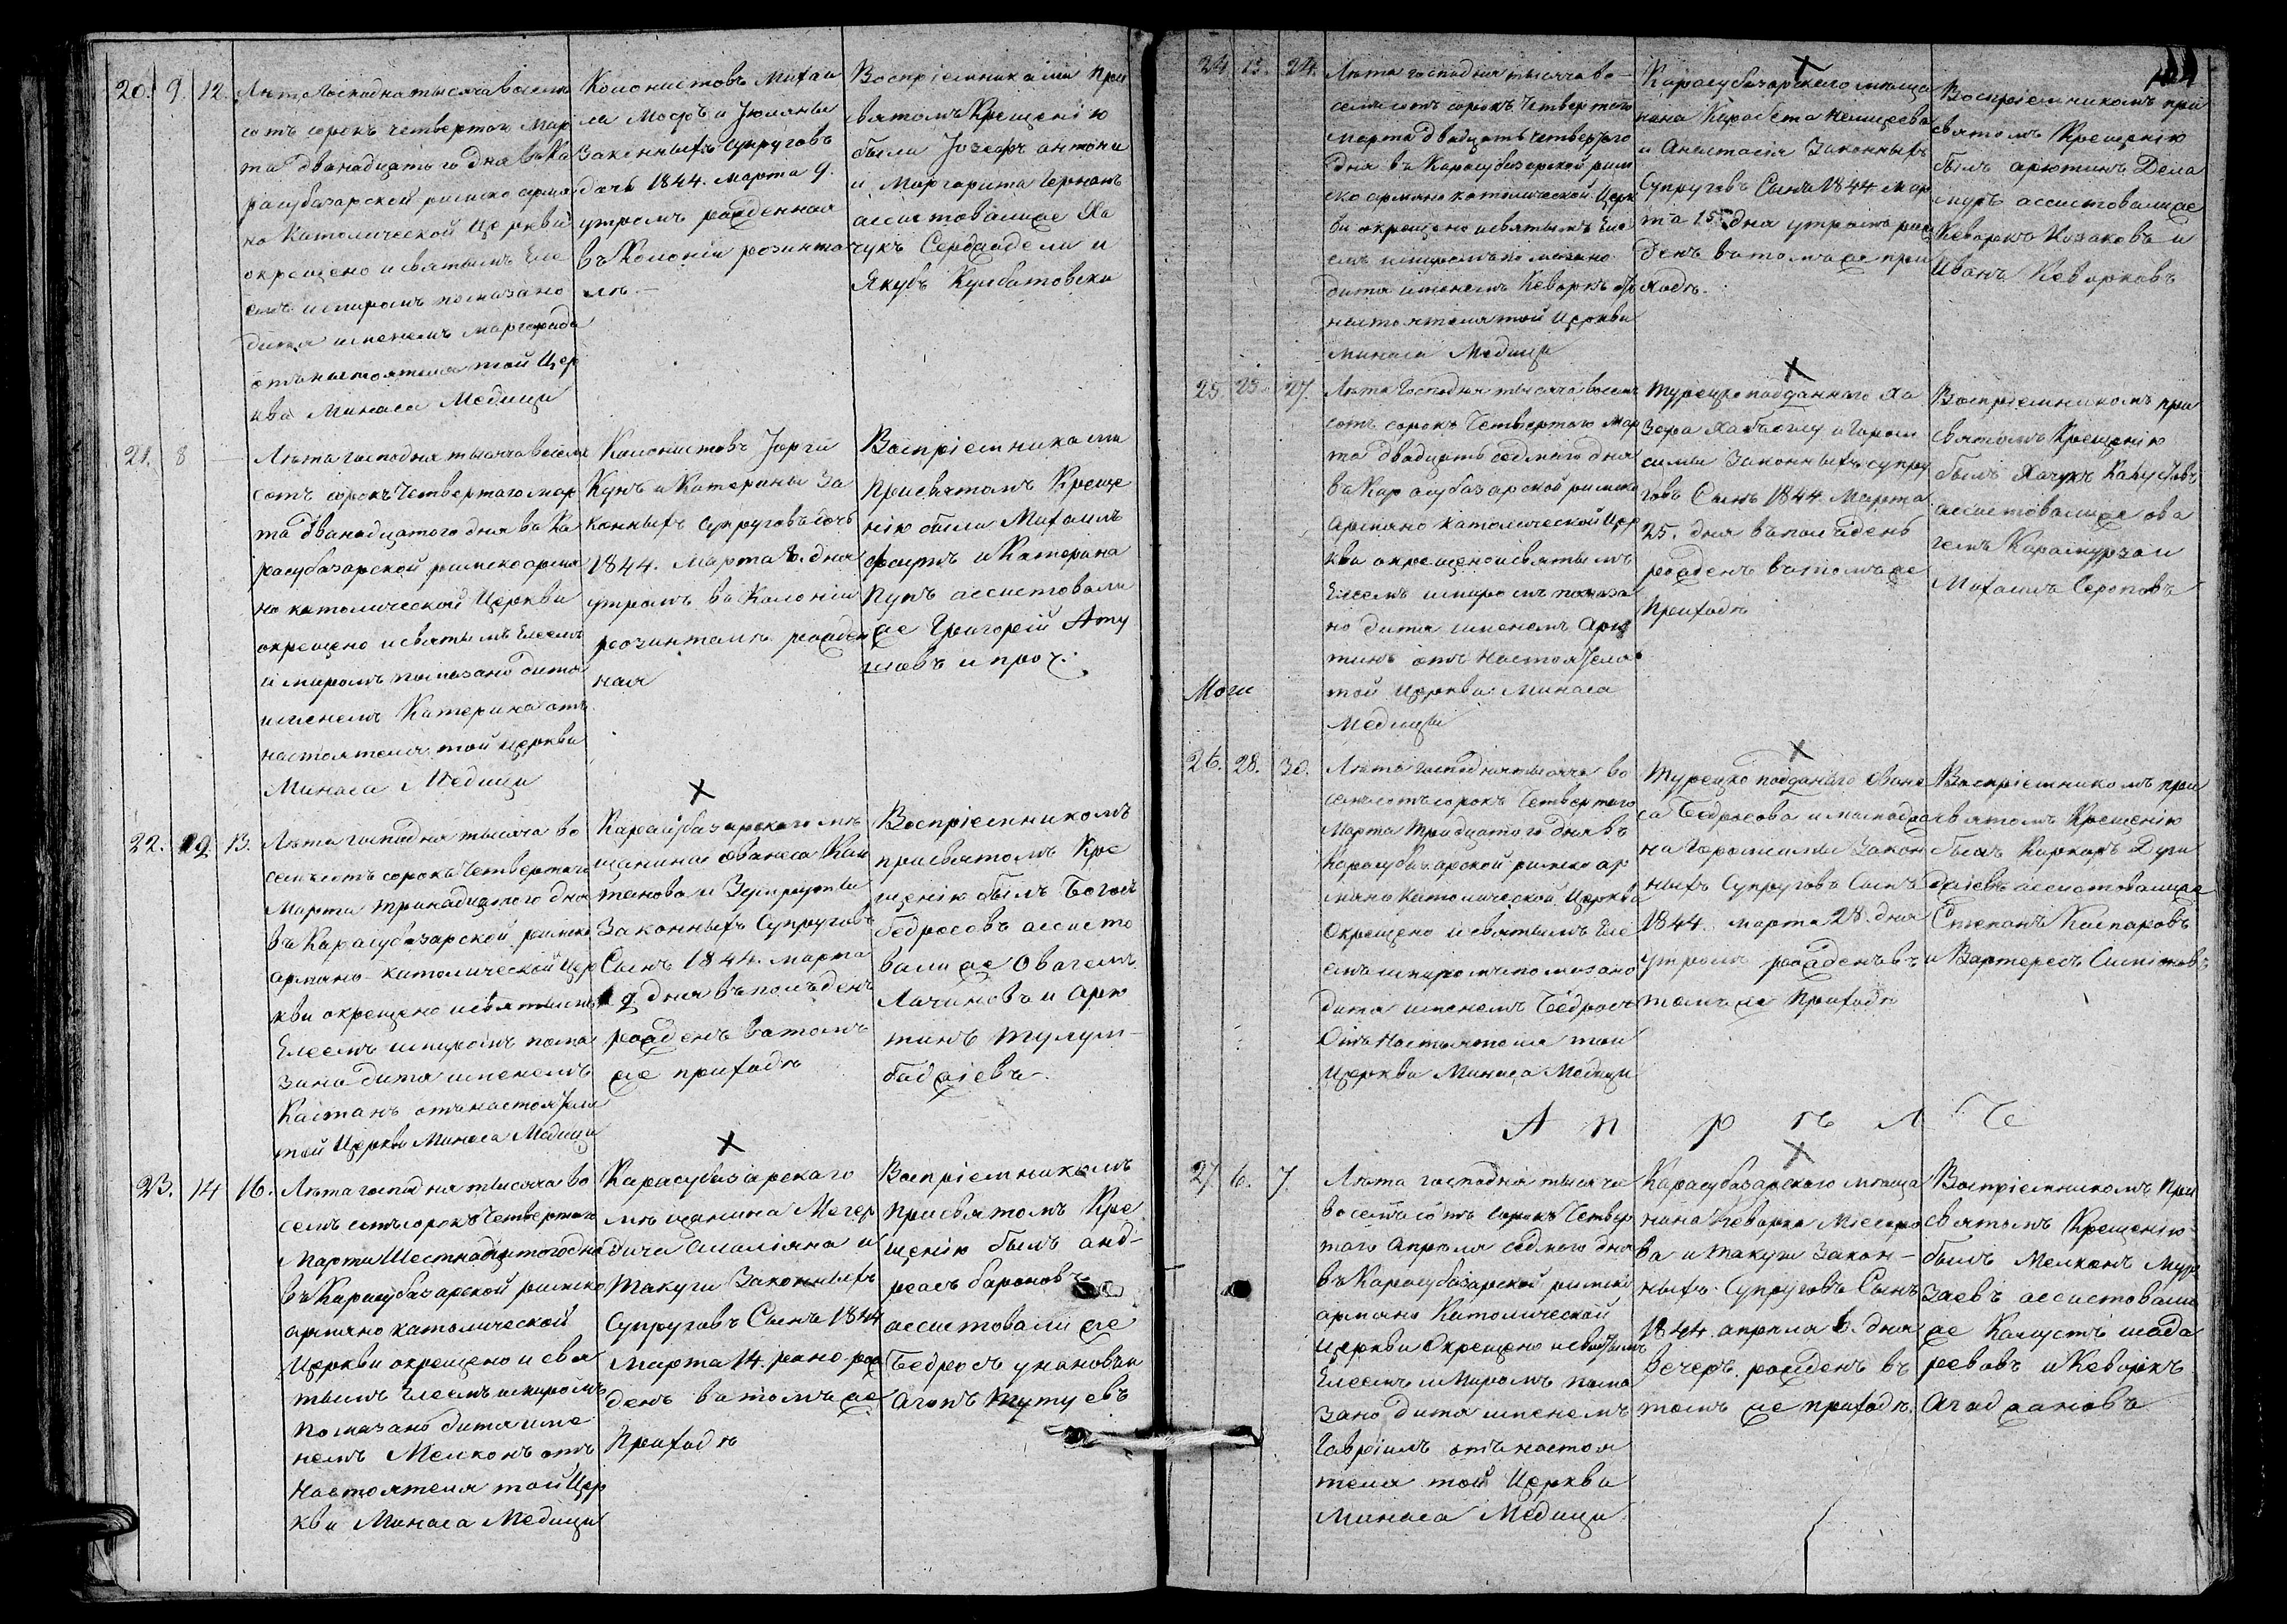 20. 9. 12.
Лѣта Господня тысяча восемь
сотъ сорокъ четвертого Мар
та двѣнадцатого дня въ Ка
расубазарской римско армя
но Католической Церкви
окрещено и святымъ Еле
емъ и миромъ помазано
дитя именемъ Маргарида
отъ настоятеля той Цер
кви Минаса Медици
Колонистовъ Михаи
ла Мофъ и Юлянны
Законныхъ супруговъ
дочь 1844. марта 9.
утромъ рожденная
въ Колоніи розинта
лѣ.
Воспріемниками при
святомъ Крещенію
были Іозефъ антони
и Маргарита Германъ
ассистовалще Ха
чукъ Сердаодели и
Якубъ Кулбатовски
21. 8
Лѣта господня тысяча восемь
сотъ сорокъ Четвертаго мар
та двѣнадцатого дня въ Ка
расубазарской римско армя
но католической Церкви
окрещено и святымъ Елеемъ
и миромъ помазано дитя
именемъ Катерина отъ
настоятеля той церкви
Минаса Медици
Колонистовъ Jорги
Кунъ и Катерины За
конныхъ супруговъ дочь
1844. Марта 8. дня
утромъ въ Колоніи
розинталѣ рожден
ная
Воспріемниками
присвятомъ Креще
нію были Михаилъ
фаутъ и Катерина
Пупъ ассистовали
же Григорей Ату
левъ и проч.
22. 12. 13.
Лѣта господня тысяча во
семьсотъ сорокъ Четвертого
Марта тринадцатого дня
въ Карасубазарской римско
армяно-католической Цер
кви окрещено и святымъ
Елеемъ и миромъ пома
зано дитя именемъ
Кастанъ отъ настоятеля
той Церкви Минаса Медици
Карасубазарского мѣ
щанина Ованеса Кас
танова и Зумрутъ
Законныхъ Супруговъ
Сынъ 1844. марта
12 дня въ полъдень
рожденъ въ томъ
же приходѣ
Воспріемникомъ
присвятомъ Кре
щенію былъ Богосъ
бедросовъ ассисто
вали же Овагемъ
Лачиновъ и Арю
тинъ тулум-
баджіевъ.
23. 14 16.
Лѣта господня тысяча во
семь сотъ сорокъ Четвертого
Марта Шестнадцатого дня
въ Карасубазарской римско
армяно католической
Церкви окрещено и свя
тымъ Елеемъ и миромъ
помазано дитя име
немъ Мелконъ отъ
настоятеля той Цер
кви Минаса Медици
Карасубазарскаго
мѣщанина Мегер
дича Амаліяна и
Такуги Законныхъ
Супруговъ Сынъ 1844
Марта 14. рано рож
денъ въ томъ же
Приходѣ
Воспріемникомъ
присвятомъ Кре
щенію былъ анд-
реасъ бароновъ
ассистовали же
Бедросъ унановъ и
Агопъ тутуевъ
24 15. 24.
Лѣта господня тысяча во-
семь сотъ сорокъ Четвертого
марта двадцать четвертого
дня въ Карасубазарской рим
ско армяно католической Церк
ви окрещено и святымъ Еле
емъ и миромъ помазано
дитя именемъ Кеворкъ отъ
настоятеля той Церкви
Минаса Медици
Карасубазарского мѣща
нина Карабета Немцева
и Анастасія Законныхъ
Супруговъ Сынъ 1844 мар
та 15 дня утромъ рож
денъ въ томъ же при
ходѣ.
Воспріемникомъ при
святомъ Крещенію
былъ арютинъ Дела
муръ ассистовалще
Кеворкъ Козаковъ и
Иванъ Кеворковъ
25. 25. 27.
Лѣта Господня тысяча восемь
сотъ сорокъ Четвертого Мар
та двадцать седмаго дня
въ Карасубазарской римско
Армяно католической Цер
кви окрещено и святымъ
Елеемъ и миромъ помаза
но дитя именемъ Арю
тинъ отъ настоятеля
той Церкви Минаса
Медици
Турецкоподданного Ха
зера Хабъоглу и Гором
симы Законныхъ супру
говъ Сынъ 1844 Марта
25. дня въ полъдень
рожденъ въ томъ же
Приходѣ
Воспріемникомъ при
святомъ Крещенію
былъ Хачукъ
ассистовали же ова
гемъ Карамурза и
Михаилъ Сероповъ
26. 28. 30.
Лѣта господня тысяча во
семьсотъ сорокъ Четвертого
Марта тридцатого дня въ
Карасубазарской римско ар
мяно католической Церкви
Окрещено и святымъ Еле
емъ и миромъ помазано
дитя именемъ Бедросъ
Отъ настоятеля той
Церкви Минаса Медици
Турецко подданного Ован
са Бедросова
Горомсимы Закон
ныхъ Супруговъ Сынъ
1844. марта 28. дня
утромъ рожденъ въ
томъ же Приходѣ
Воспріемникомъ при
святомъ Крещенію
былъ Киркоръ Дуги
джіевъ ассистовалще
Степанъ Каспаровъ
и Вартересъ
А п р ѣ л Ь
27. 6. 7.
Лѣта господня тысяча
восемь сотъ сорокъ Четвер
того Апрѣля седмого дня
въ Карасубазарской римско
армяно Католической
Церкви Окрещено и святымъ
Елеемъ и Миромъ пома
зано дитя именемъ
Гавріилъ отъ настоя
теля той Церкви
Минаса Медици.
Карасубазарского мѣща
нина Кеворка Місеро
ва и Такуги Закон-
ныхъ Супруговъ Сынъ
1844. апрѣля 6. дня
вечеръ рожденъ въ
томъ же приходѣ.
Воспріемникомъ при
святымъ Крещенію
былъ Мелконъ Мур
заевъ ассистовали
же Калустъ шада
ревовъ и Кеворкъ
Агаджановъ